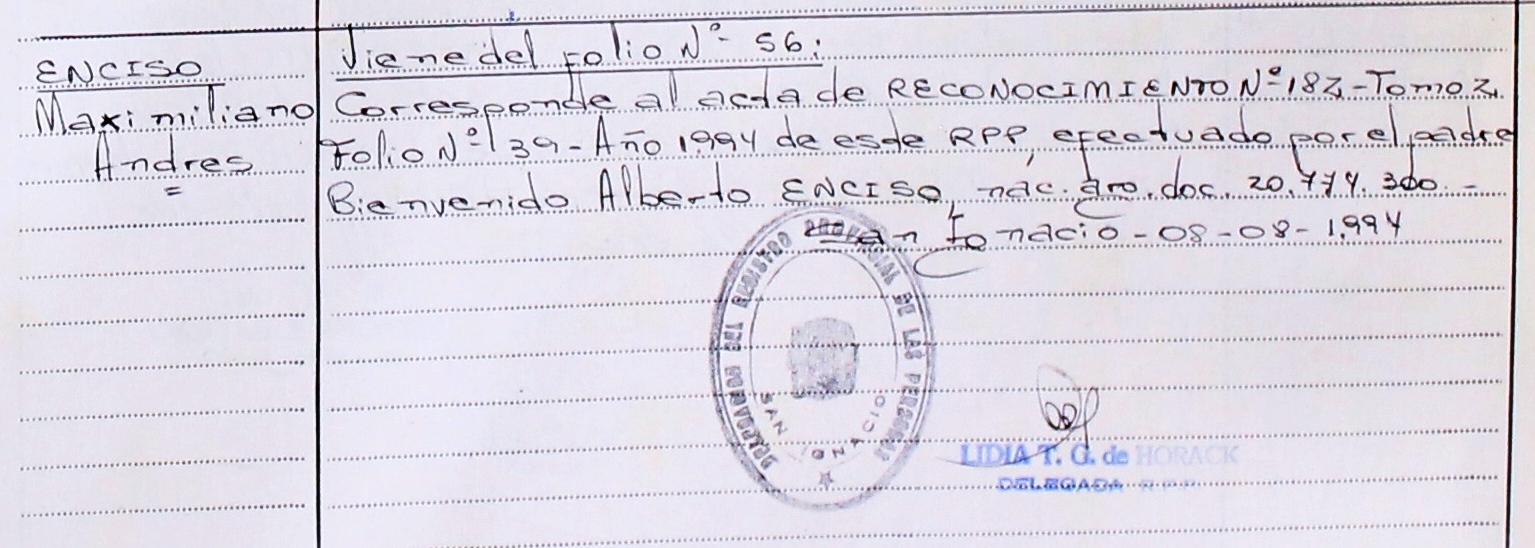 ENCISO
Maximiliano
Andres
Viene del Folio Nº 56:
Corresponde al acta de RECONOCIMIENTO Nº 182 - Tomo 2
Folio Nº 39 - Año 1994 de este RPP, efectuado por el padre
Bienvenido Alberto ENCISO, nac. arg. doc. 20.774.300 -
San Ignacio - 08-08-1.994
DELEGACION DEL REGISTRO PROVINCIAL DE LAS PERSONAS
SAN IGNACIO
LIDIA T. G. de HORACK
DELEGADA R.P.P.